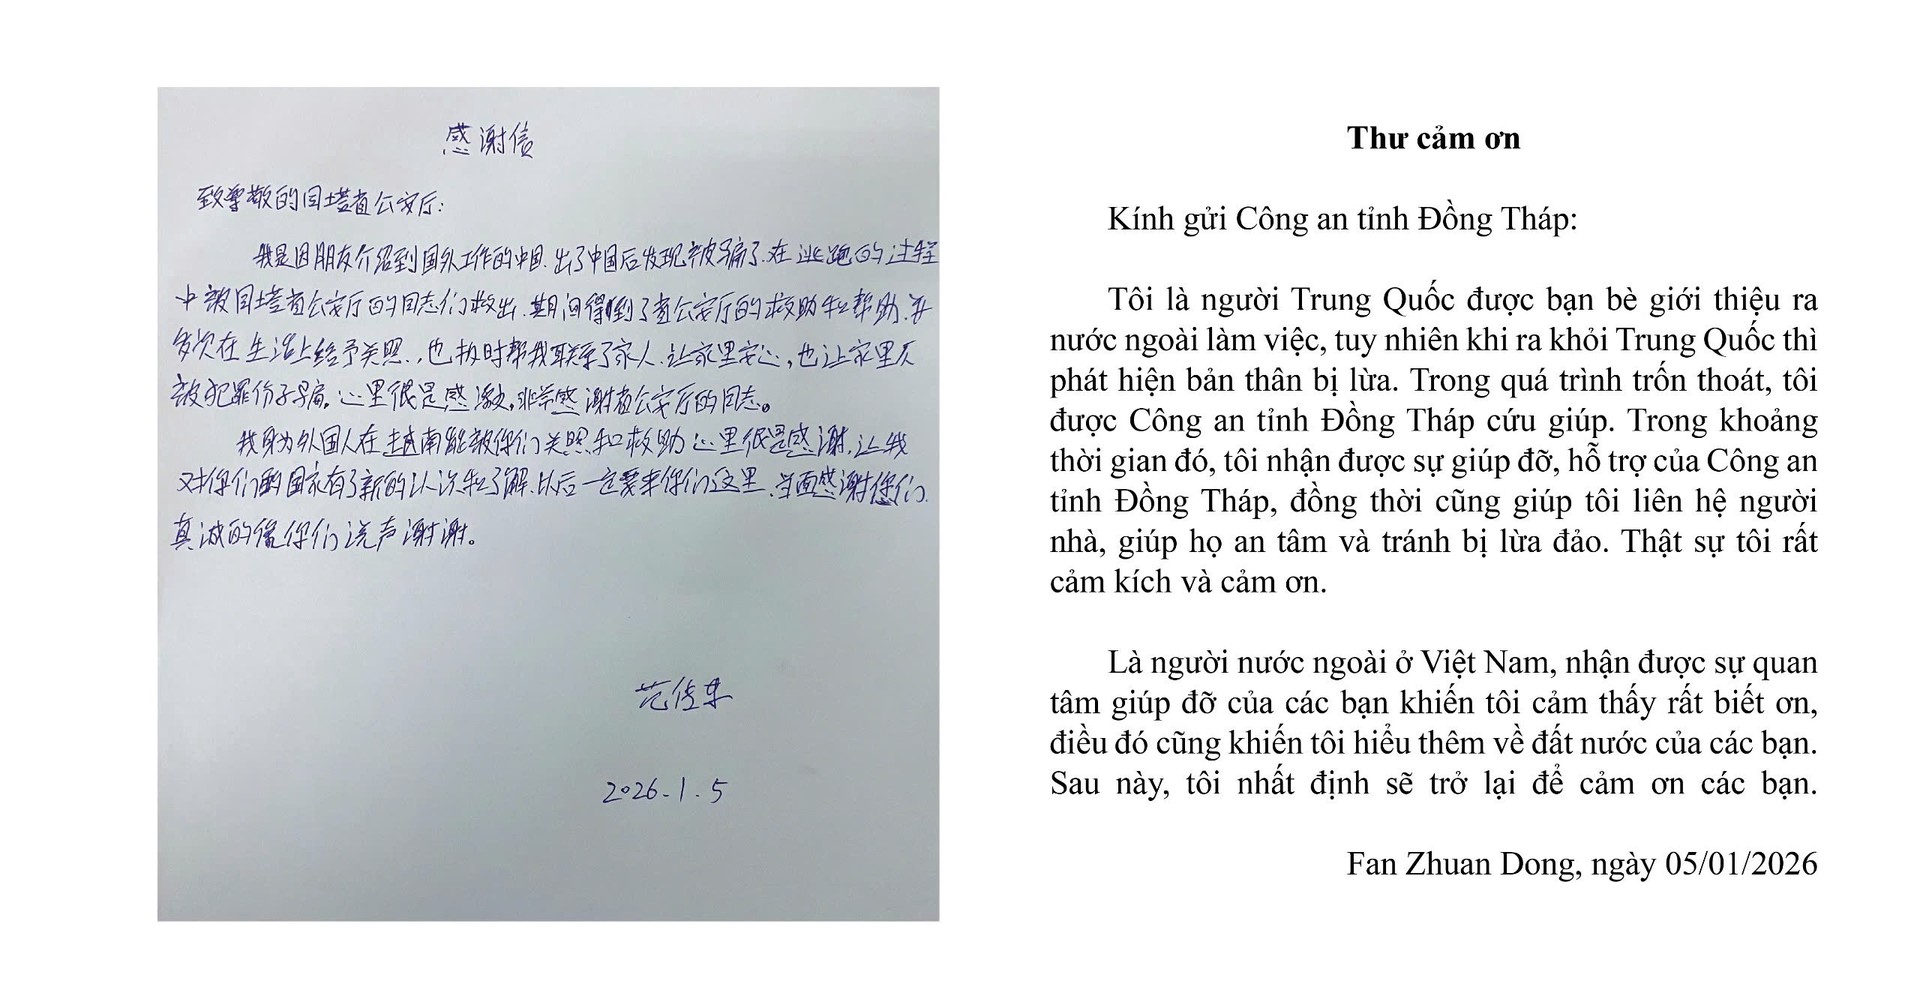 感谢信
致尊敬的同塔省公安厅:
我是因朋友介绍到国外工作的中国.出了中国后发现被骗了.在逃跑的过程
中被同塔省公安厅的同志们救出.期间得到了省公安厅的救助和帮助.并
多次在生活上给予关照.,也按时帮我联系了家人.让家里安心,也让家里不
被犯罪份子骗.心里很是感激.非常感谢省公安厅的同志。
我身为外国人在越南能被你们关照和救助心里很是感谢.让我
对你们的国家有了新的认识和了解.以后一定要来你们这里.当面感谢您们.
真诚的你们说声谢谢。
范
2026.1.5
Thư cảm ơn
Kính gửi Công an tỉnh Đồng Tháp:
Tôi là người Trung Quốc được bạn bè giới thiệu ra
nước ngoài làm việc, tuy nhiên khi ra khỏi Trung Quốc thì
phát hiện bản thân bị lừa. Trong quá trình trốn thoát, tôi
được Công an tỉnh Đồng Tháp cứu giúp. Trong khoảng
thời gian đó, tôi nhận được sự giúp đỡ, hỗ trợ của Công an
tỉnh Đồng Tháp, đồng thời cũng giúp tôi liên hệ người
nhà, giúp họ an tâm và tránh bị lừa đảo. Thật sự tôi rất
cảm kích và cảm ơn.
Là người nước ngoài ở Việt Nam, nhận được sự quan
tâm giúp đỡ của các bạn khiến tôi cảm thấy rất biết ơn,
điều đó cũng khiến tôi hiểu thêm về đất nước của các bạn.
Sau này, tôi nhất định sẽ trở lại để cảm ơn các bạn.
Fan Zhuan Dong, ngày 05/01/2026